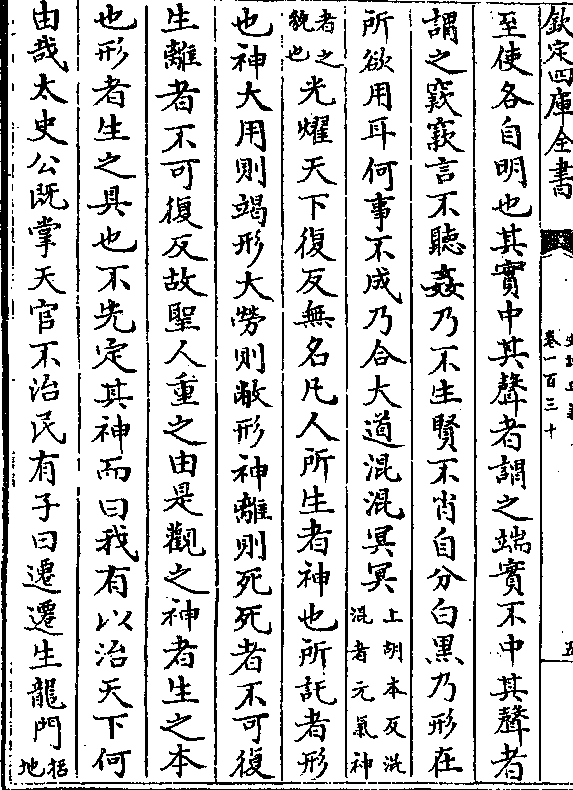 欽定四庫全書
卷一百三十
五
至使各自明也其實中其聲者謂之端實不中其聲者
謂之窾窾言不聽姦乃不生賢不肖自分白黑乃形在
所欲用耳何事不成乃合大道混混冥冥上胡本反混
混者元氣神
者之
貌也光燿天下復反無名凡人所生者神也所託者形
也神大用則竭形大勞則敝形神離則死死者不可復
生離者不可復反故聖人重之由是觀之神者生之本
也形者生之具也不先定其神而曰我有以治天下何
由哉太史公既掌天官不治民有子曰遷遷生龍門括
地